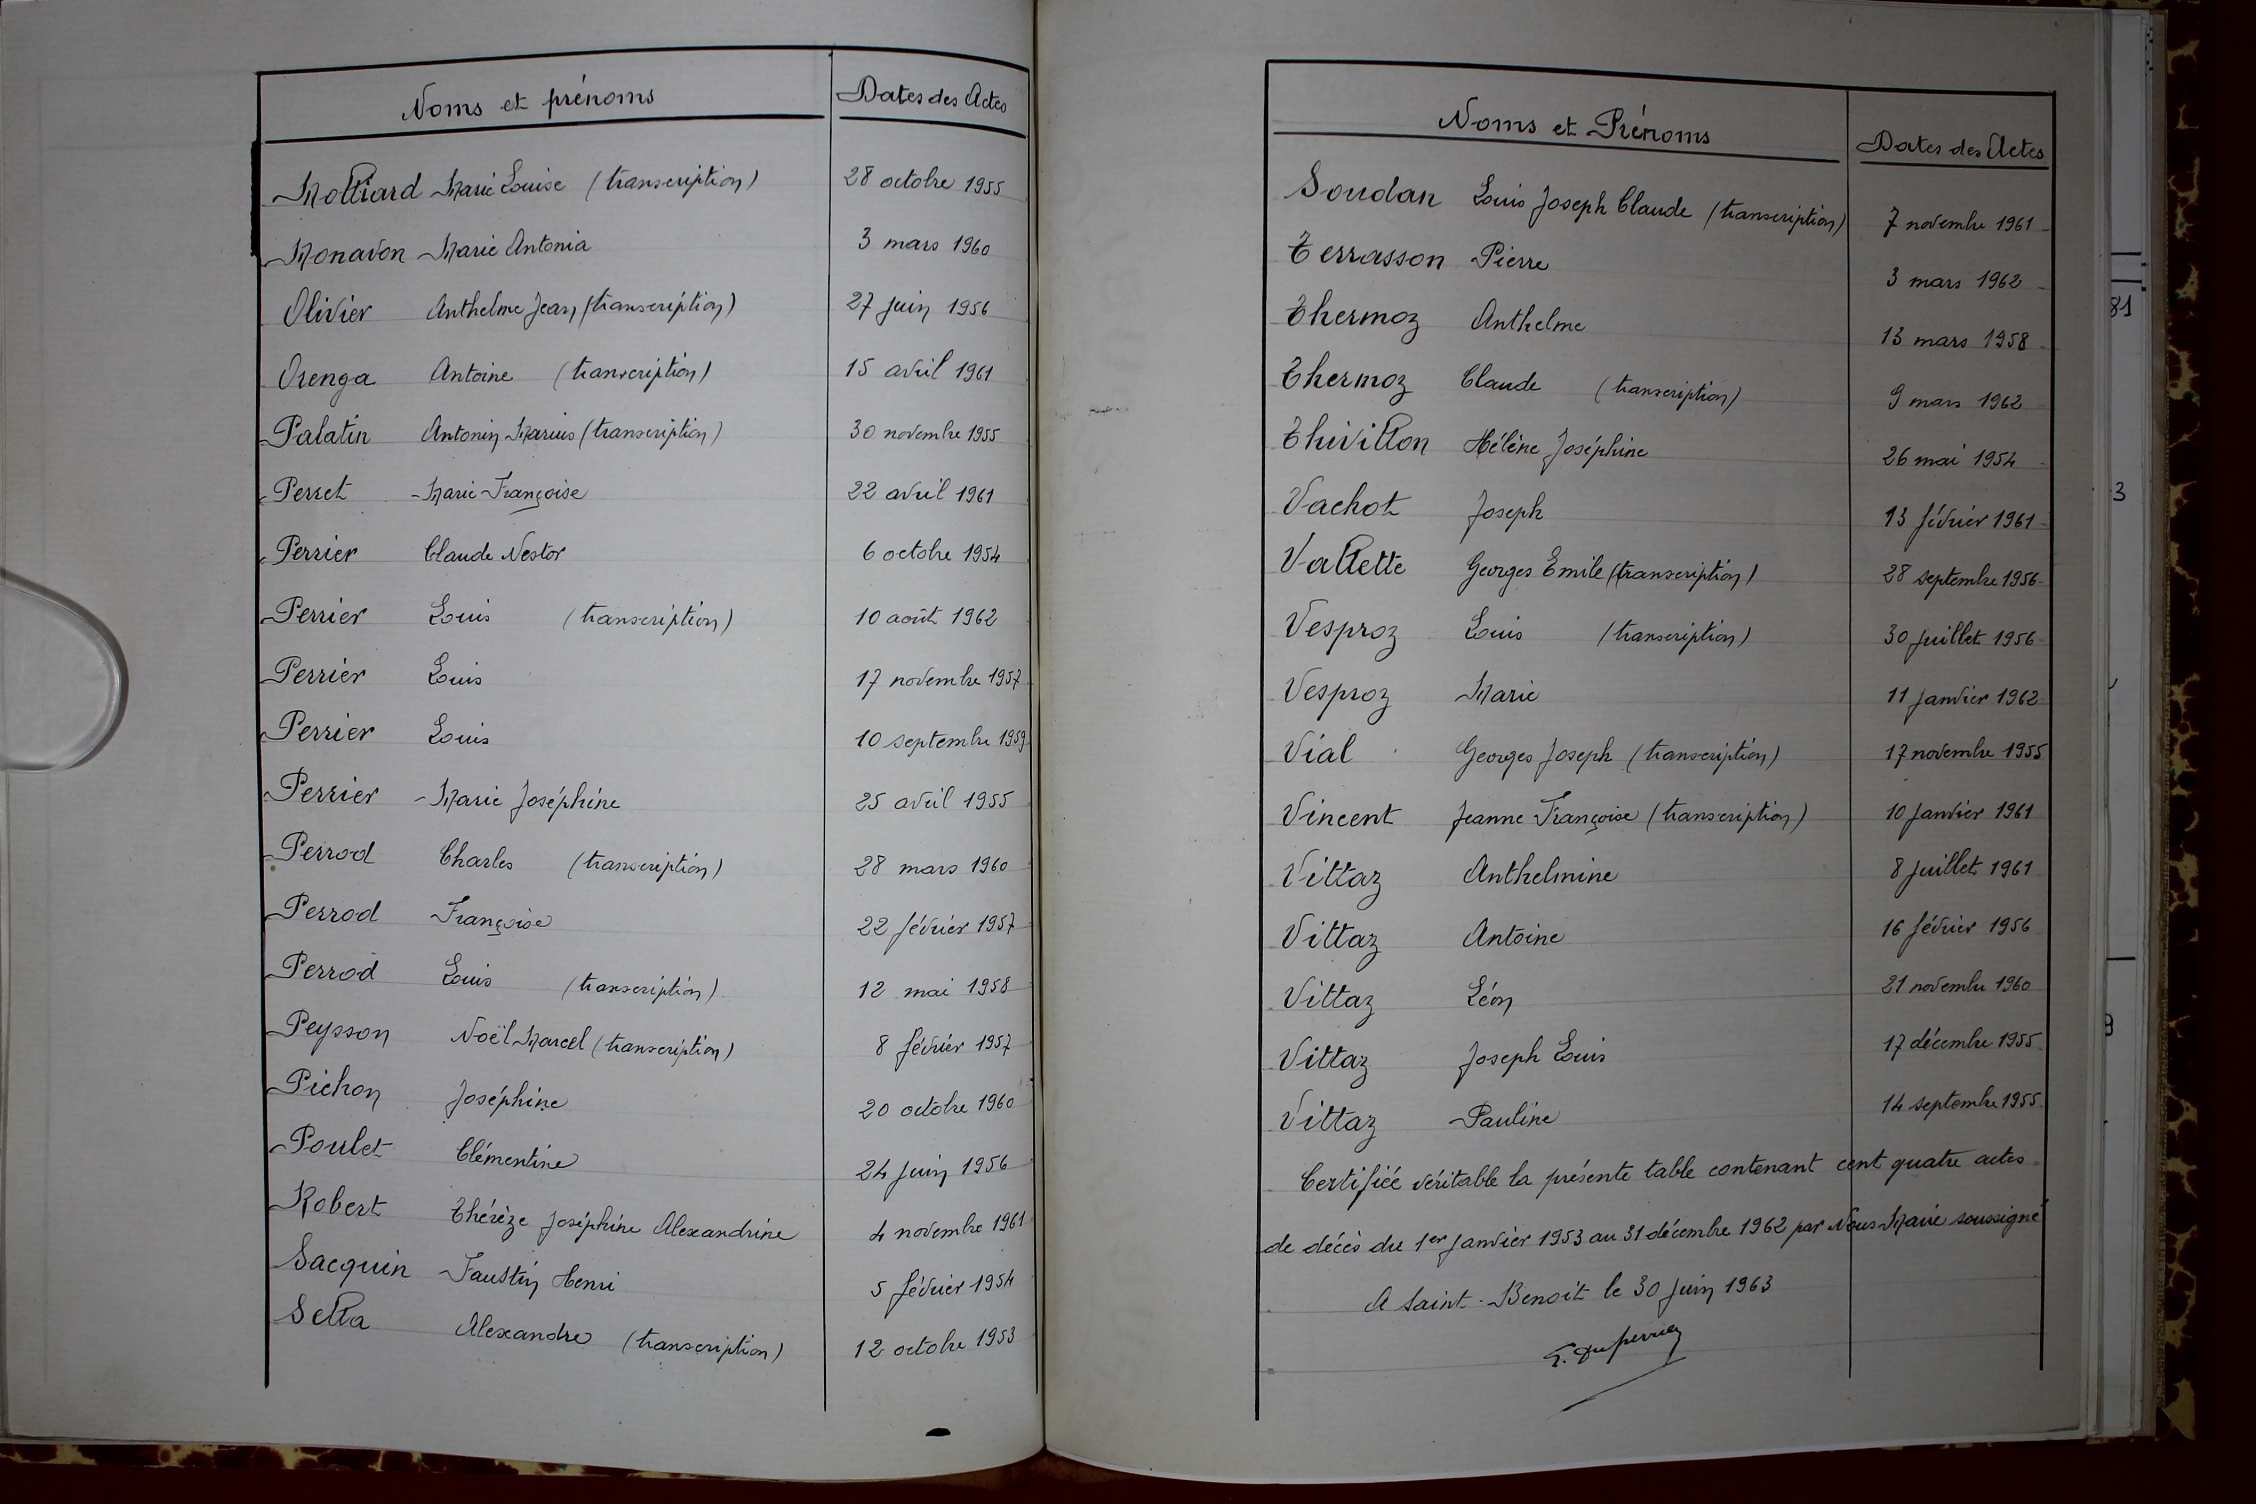 Noms et prénoms Dates des Actes
Molliard Marie Louise (transcription) 28 octobre 1955
Monavon Marie Antonia 3 mars 1960
Olivier Anthelme Jean (transcription) 27 juin 1956
Orenga Antoine (transcription) 15 avril 1961
Palatin Antonin Marius (transcription) 30 novembre 1955
Perret Marie-Françoise 22 avril 1961
Perrier Claude Nestor 6 octobre 1954
Perrier Louis (transcription) 10 août 1962
Perrier Louis 17 novembre 1957
Perrier Louis 10 septembre 1959
Perrier Marie Joséphine 25 avril 1955
Perrod Charles (transcription) 28 mars 1960
Perrod Françoise 22 février 1957
Perrod Louis (transcription) 12 mai 1958
Peysson Noël Marcel (transcription) 8 février 1957
Pichon Joséphine 20 octobre 1960
Poulet Clémentine 24 juin 1956
Robert Thérèze Joséphine Alexandrine 4 novembre 1961
Sacquin Faustin Henri 5 février 1954
Sella Alexandre (transcription) 12 octobre 1953
Noms et Prénoms Dates des Actes
Soudan Louis Joseph Claude (transcription) 7 novembre 1961
Terrasson Pierre 3 mars 1962
Thermoz Anthelme 13 mars 1958
Thermoz Claude (transcription) 9 mars 1962
Thivillon Hélène Joséphine 26 mai 1954
Vachot Joseph 13 février 1961
Vallette Georges Emile (transcription) 28 septembre 1956
Vesproz Louis (transcription) 30 juillet 1956
Vesproz Marie 11 janvier 1962
Vial Georges Joseph (transcription) 17 novembre 1955
Vincent Jeanne Françoise (transcription) 10 janvier 1961
Vittaz Anthelmine 8 juillet 1961
Vittaz Antoine 16 février 1956
Vittaz Léon 21 novembre 1960
Vittaz Joseph Louis 17 décembre 1955
Vittaz Pauline 14 septembre 1955
Certifiée véritable la présente table contenant cent quatre actes
de décès du 1er janvier 1953 au 31 décembre 1962 par Nous Maire soussigné
A Saint-Benoît le 30 juin 1963
81
3